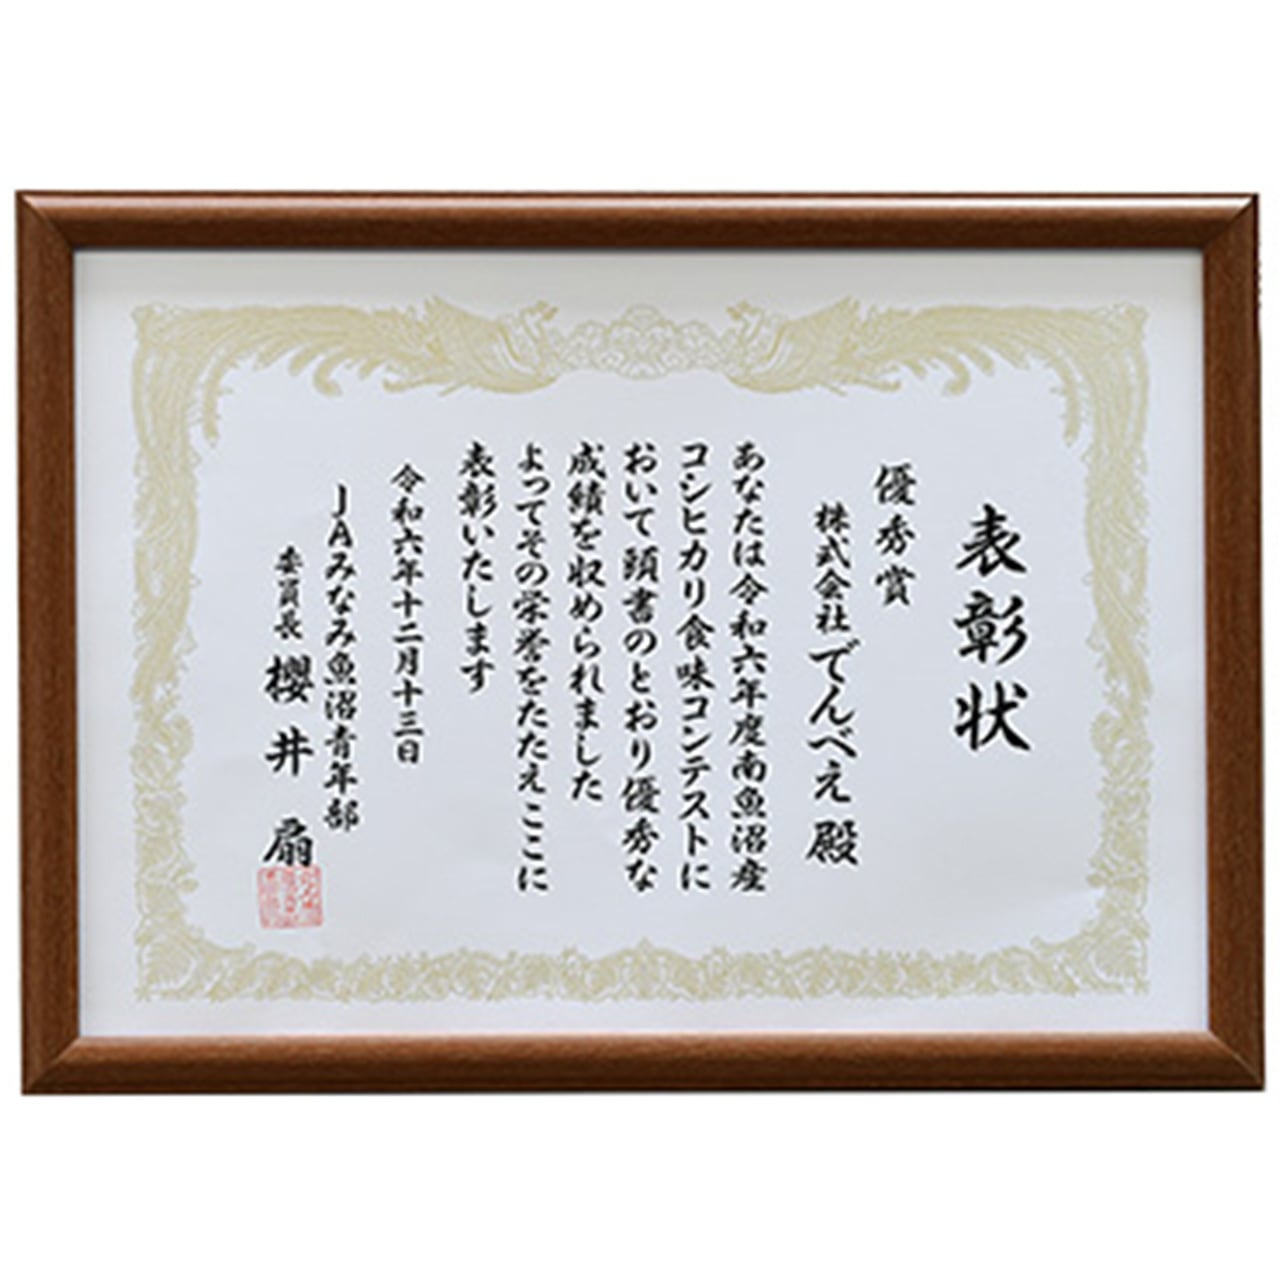 表彰状
優秀賞
株式会社でんべえ殿
あなたは令和六年度南魚沼産
コシヒカリ食味コンテストに
おいて頭書のとおり優秀な
成績を収められました
よってその栄誉をたたえここに
表彰いたします
令和六年十二月十三日
JAみなみ魚沼青年部
委員長 櫻井 扇